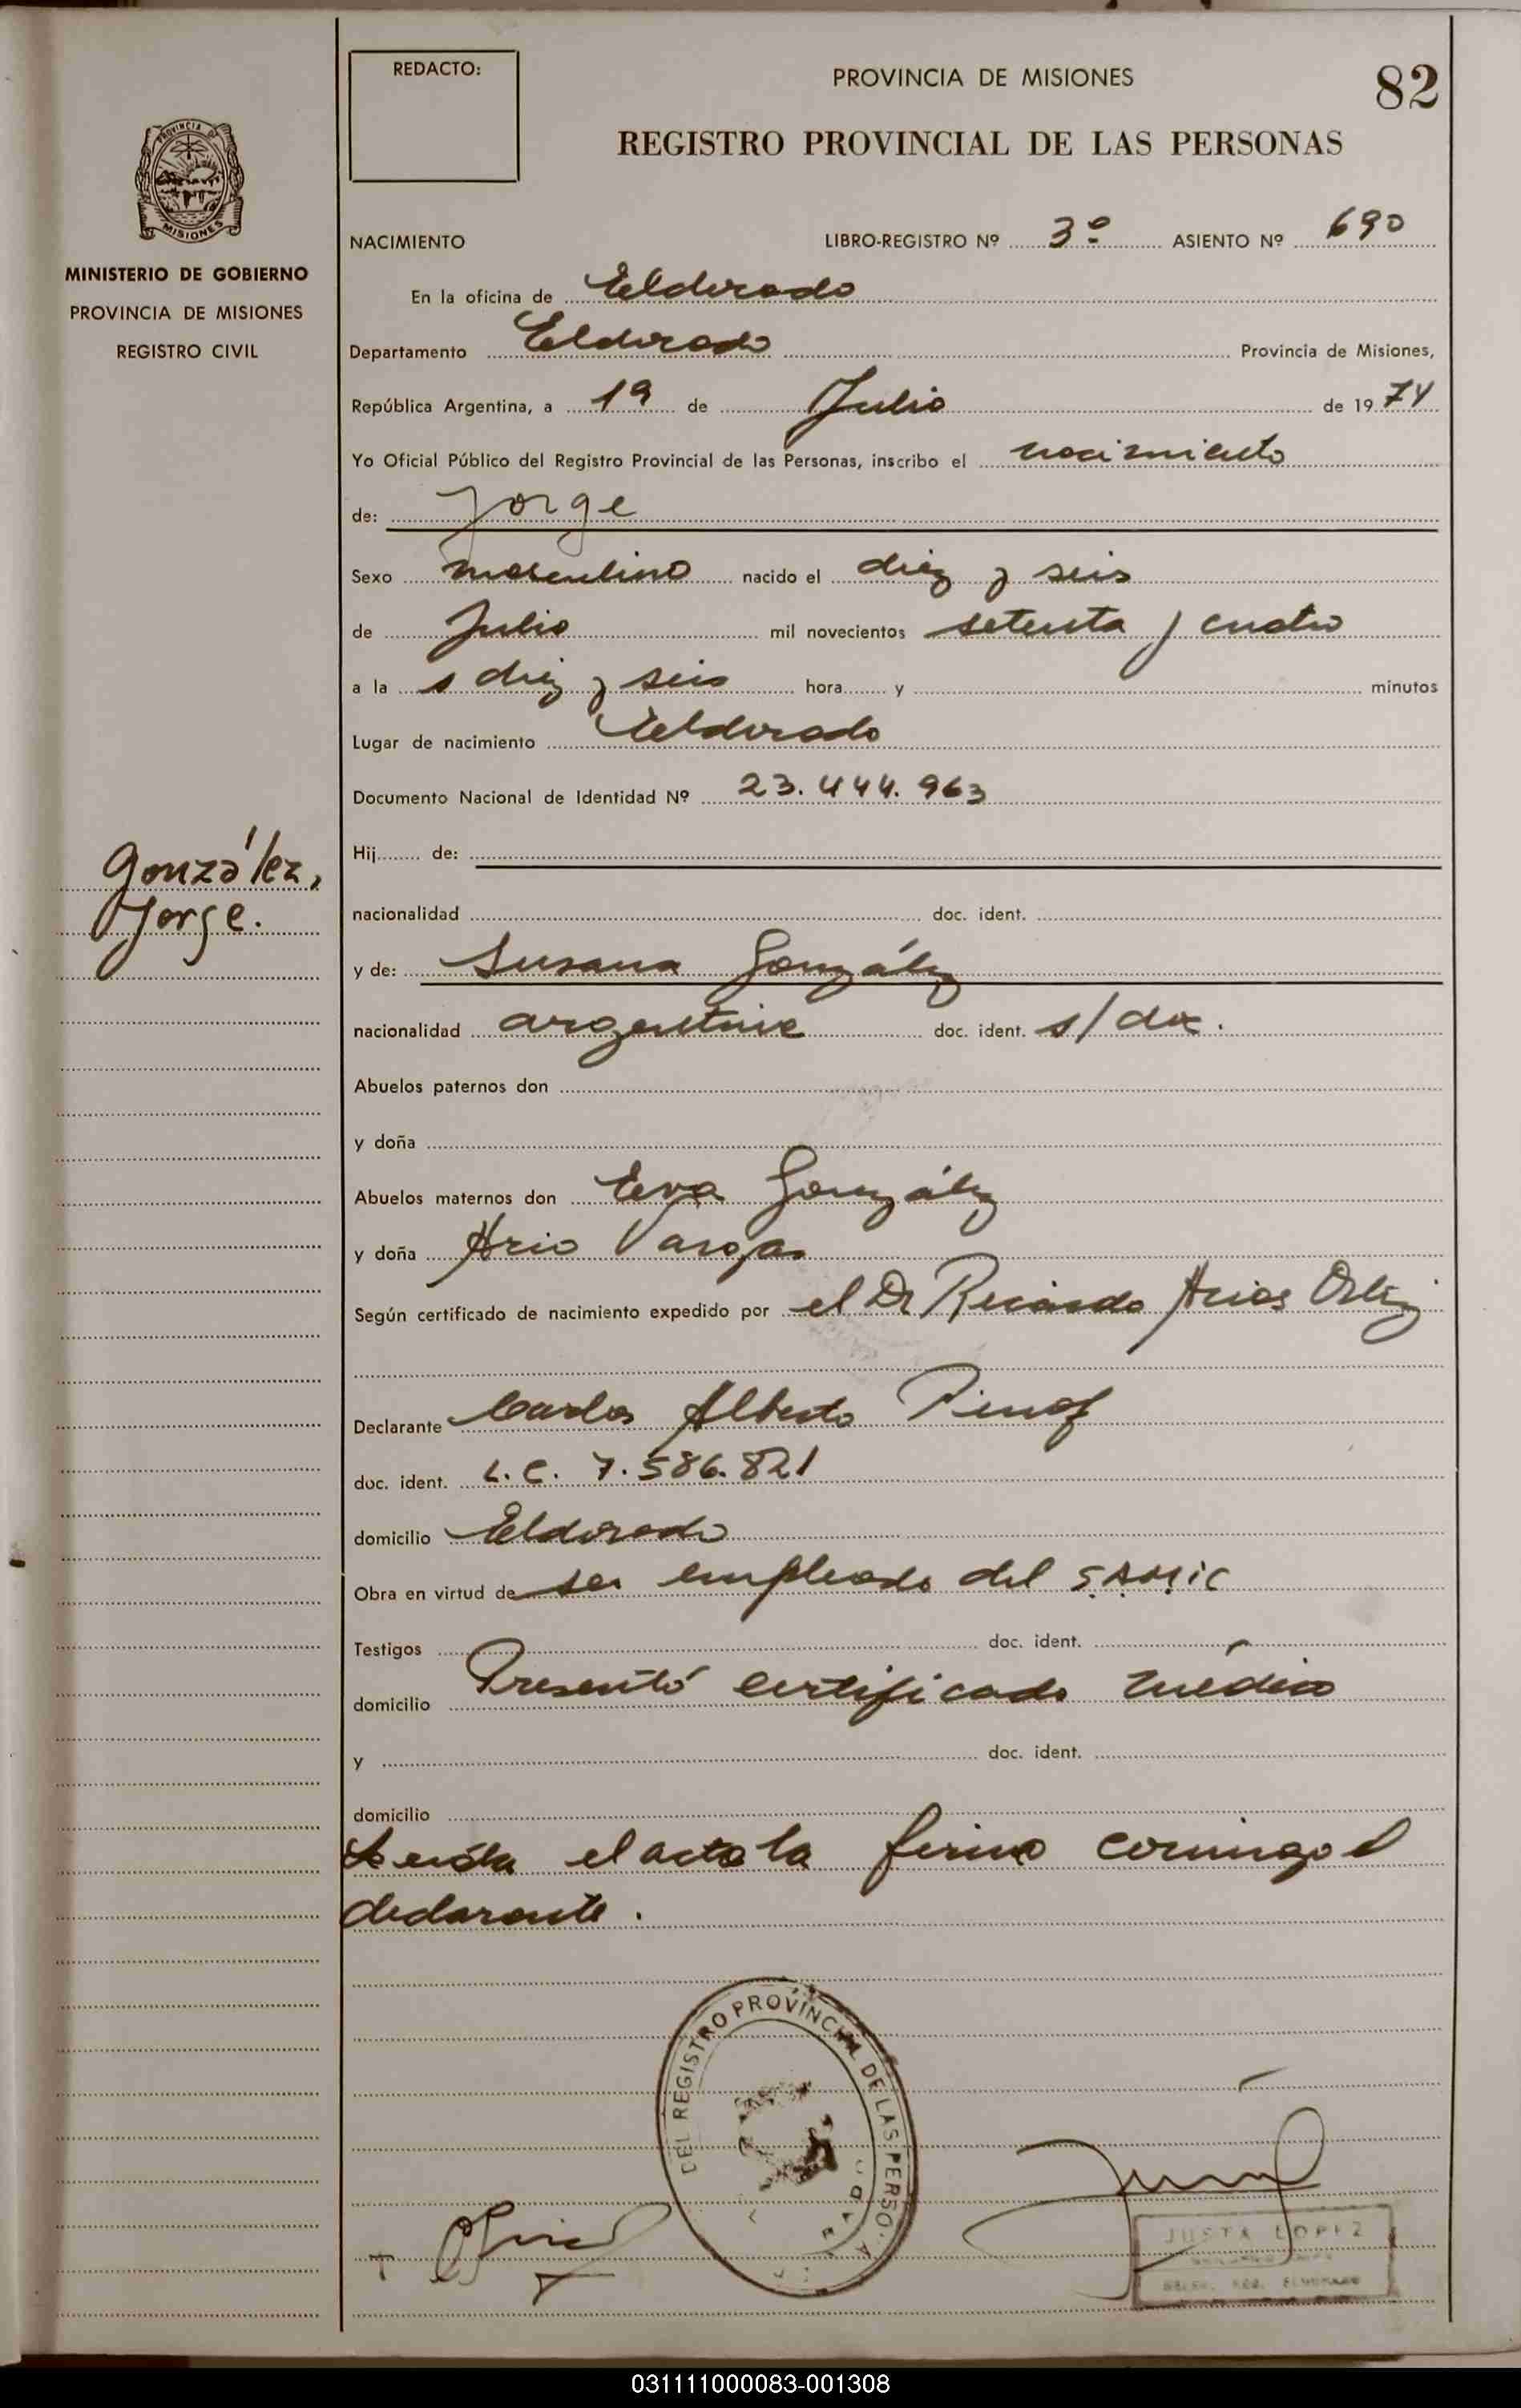 REDACTO:
PROVINCIA DE MISIONES
82
REGISTRO PROVINCIAL DE LAS PERSONAS
PROVINCIA DE
MISIONES
MINISTERIO DE GOBIERNO
PROVINCIA DE MISIONES
REGISTRO CIVIL
NACIMIENTO LIBRO-REGISTRO Nº 3º ASIENTO Nº 690
En la oficina de Eldorado
Departamento Eldorado Provincia de Misiones,
República Argentina, a 19 de Julio de 1974
Yo Oficial Público del Registro Provincial de las Personas, inscribo el nacimiento
de: Jorge
Sexo masculino nacido el diez y seis
de Julio mil novecientos setenta y cuatro
a la s diez y seis hora y minutos
Lugar de nacimiento Eldorado
Documento Nacional de Identidad Nº 23.444.963
González,
Jorge.
Hij de:
nacionalidad doc. ident.
y de: Susana González
nacionalidad argentina doc. ident. s/doc.
Abuelos paternos don
y doña
Abuelos maternos don Eva González
y doña Ario Vargas
Según certificado de nacimiento expedido por el Dr Ricardo Arias Ortiz
Declarante Carlos Alberto
doc. ident. L.E. 7.586.821
domicilio Eldorado
Obra en virtud de ser empleado del SAMIC
Testigos doc. ident.
Presentó certificado médico
domicilio
y doc. ident.
domicilio
Leída el acta la firma conmigo el
declarante.
DEL REGISTRO PROVINCIAL DE LAS PERSO
JUSTA LOPEZ
031111000083-001308